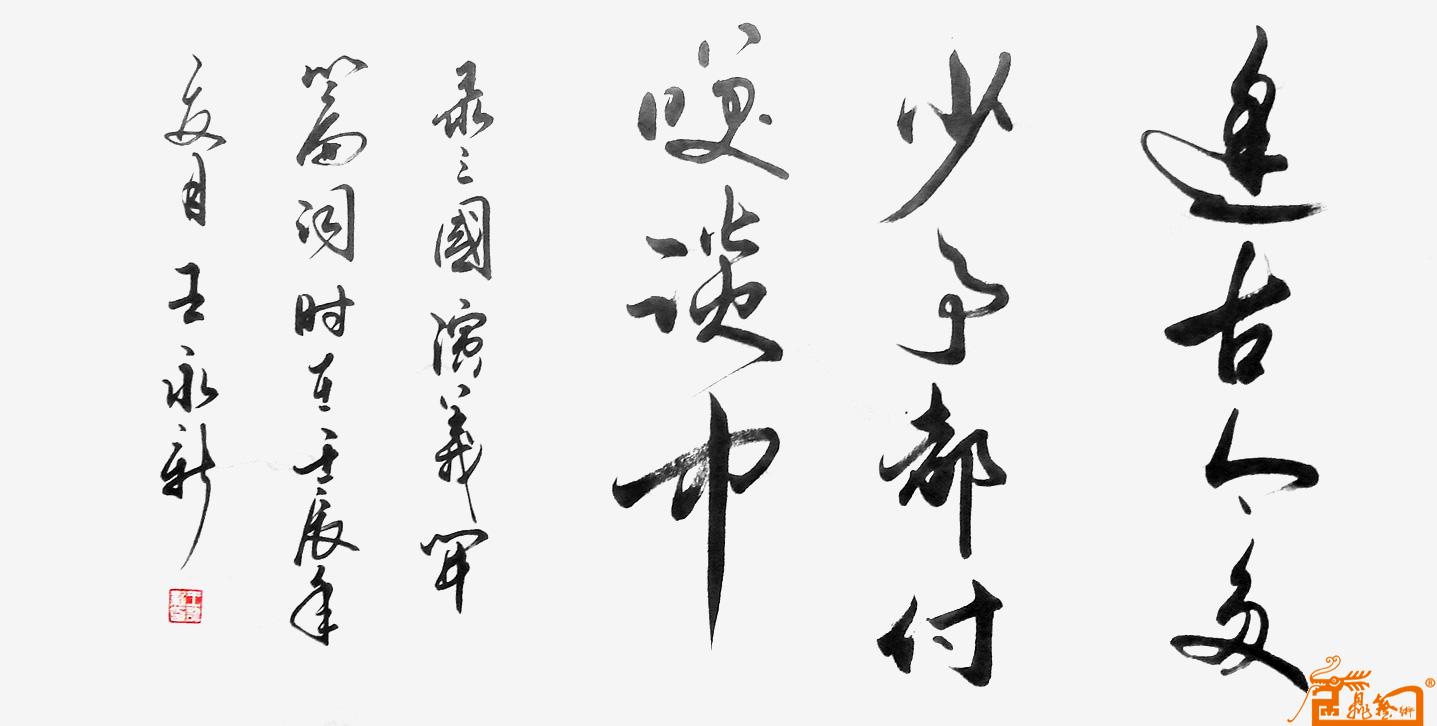 逢古今多
少事都付
笑谈中
录三國演義開
篇词时在壬辰年
夏月王永新